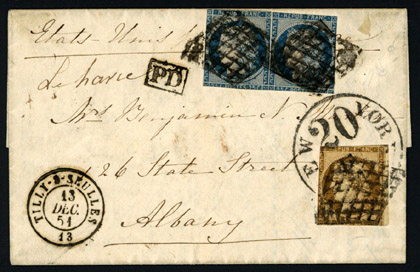 REPUB. FRANC. REPUB. FRANC.
Etats-Unis
Le havre
PD
Mrs Benjamin
NEW YORK
20
126 State Street
Albany
TILLY-S-SEULLES
13
DÉC.
51
13